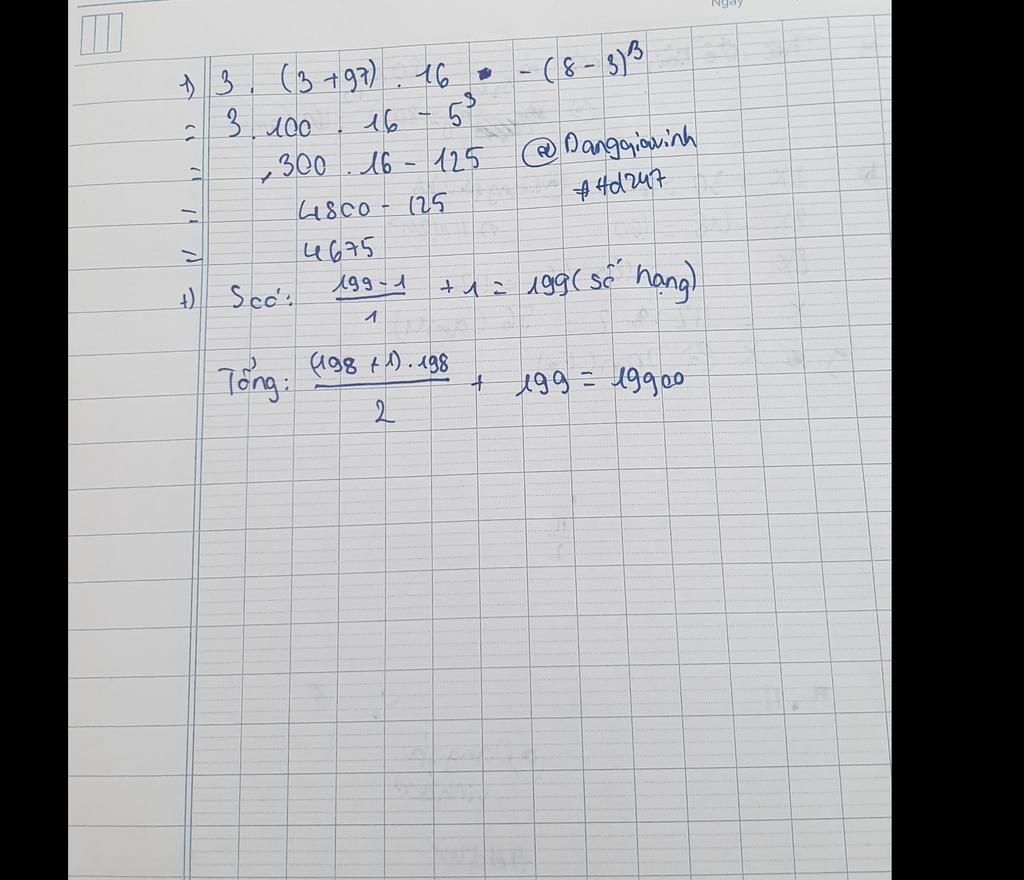 Ngày
+) 3 . (3 + 97) . 16 - (8 - 3)³
= 3 . 100 . 16 - 5³
= 300 . 16 - 125 @Danggiavinh
= 4800 - 125 #Hd247
= 4675
+) S có: (199 - 1)/1 + 1 = 199 (số hạng)
Tổng: ((198 + 1) . 198)/2 + 199 = 19900